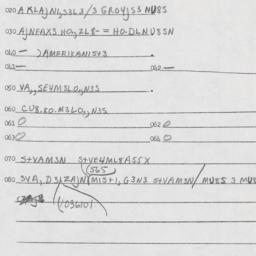 020 AKLAJNI,S3LS/S GROYJS3 NU8S
030 AJNFAXS HO2,ZL8-= HO-DLNU8SN
040 — JAMERIKANISY3
041 — 042 —
050 VA,,SE4M3LO,,N3S.
060 CU8.80.M3LO,,N3S
061 0 062 0
063 0 064 0
070 S+VAM3N S+VE4ML8ASSX
(565
080 3VA, D3(ZAJN(MIS+1, G3N3 S+VAM3N/MU8S 3 MU8
(1036101